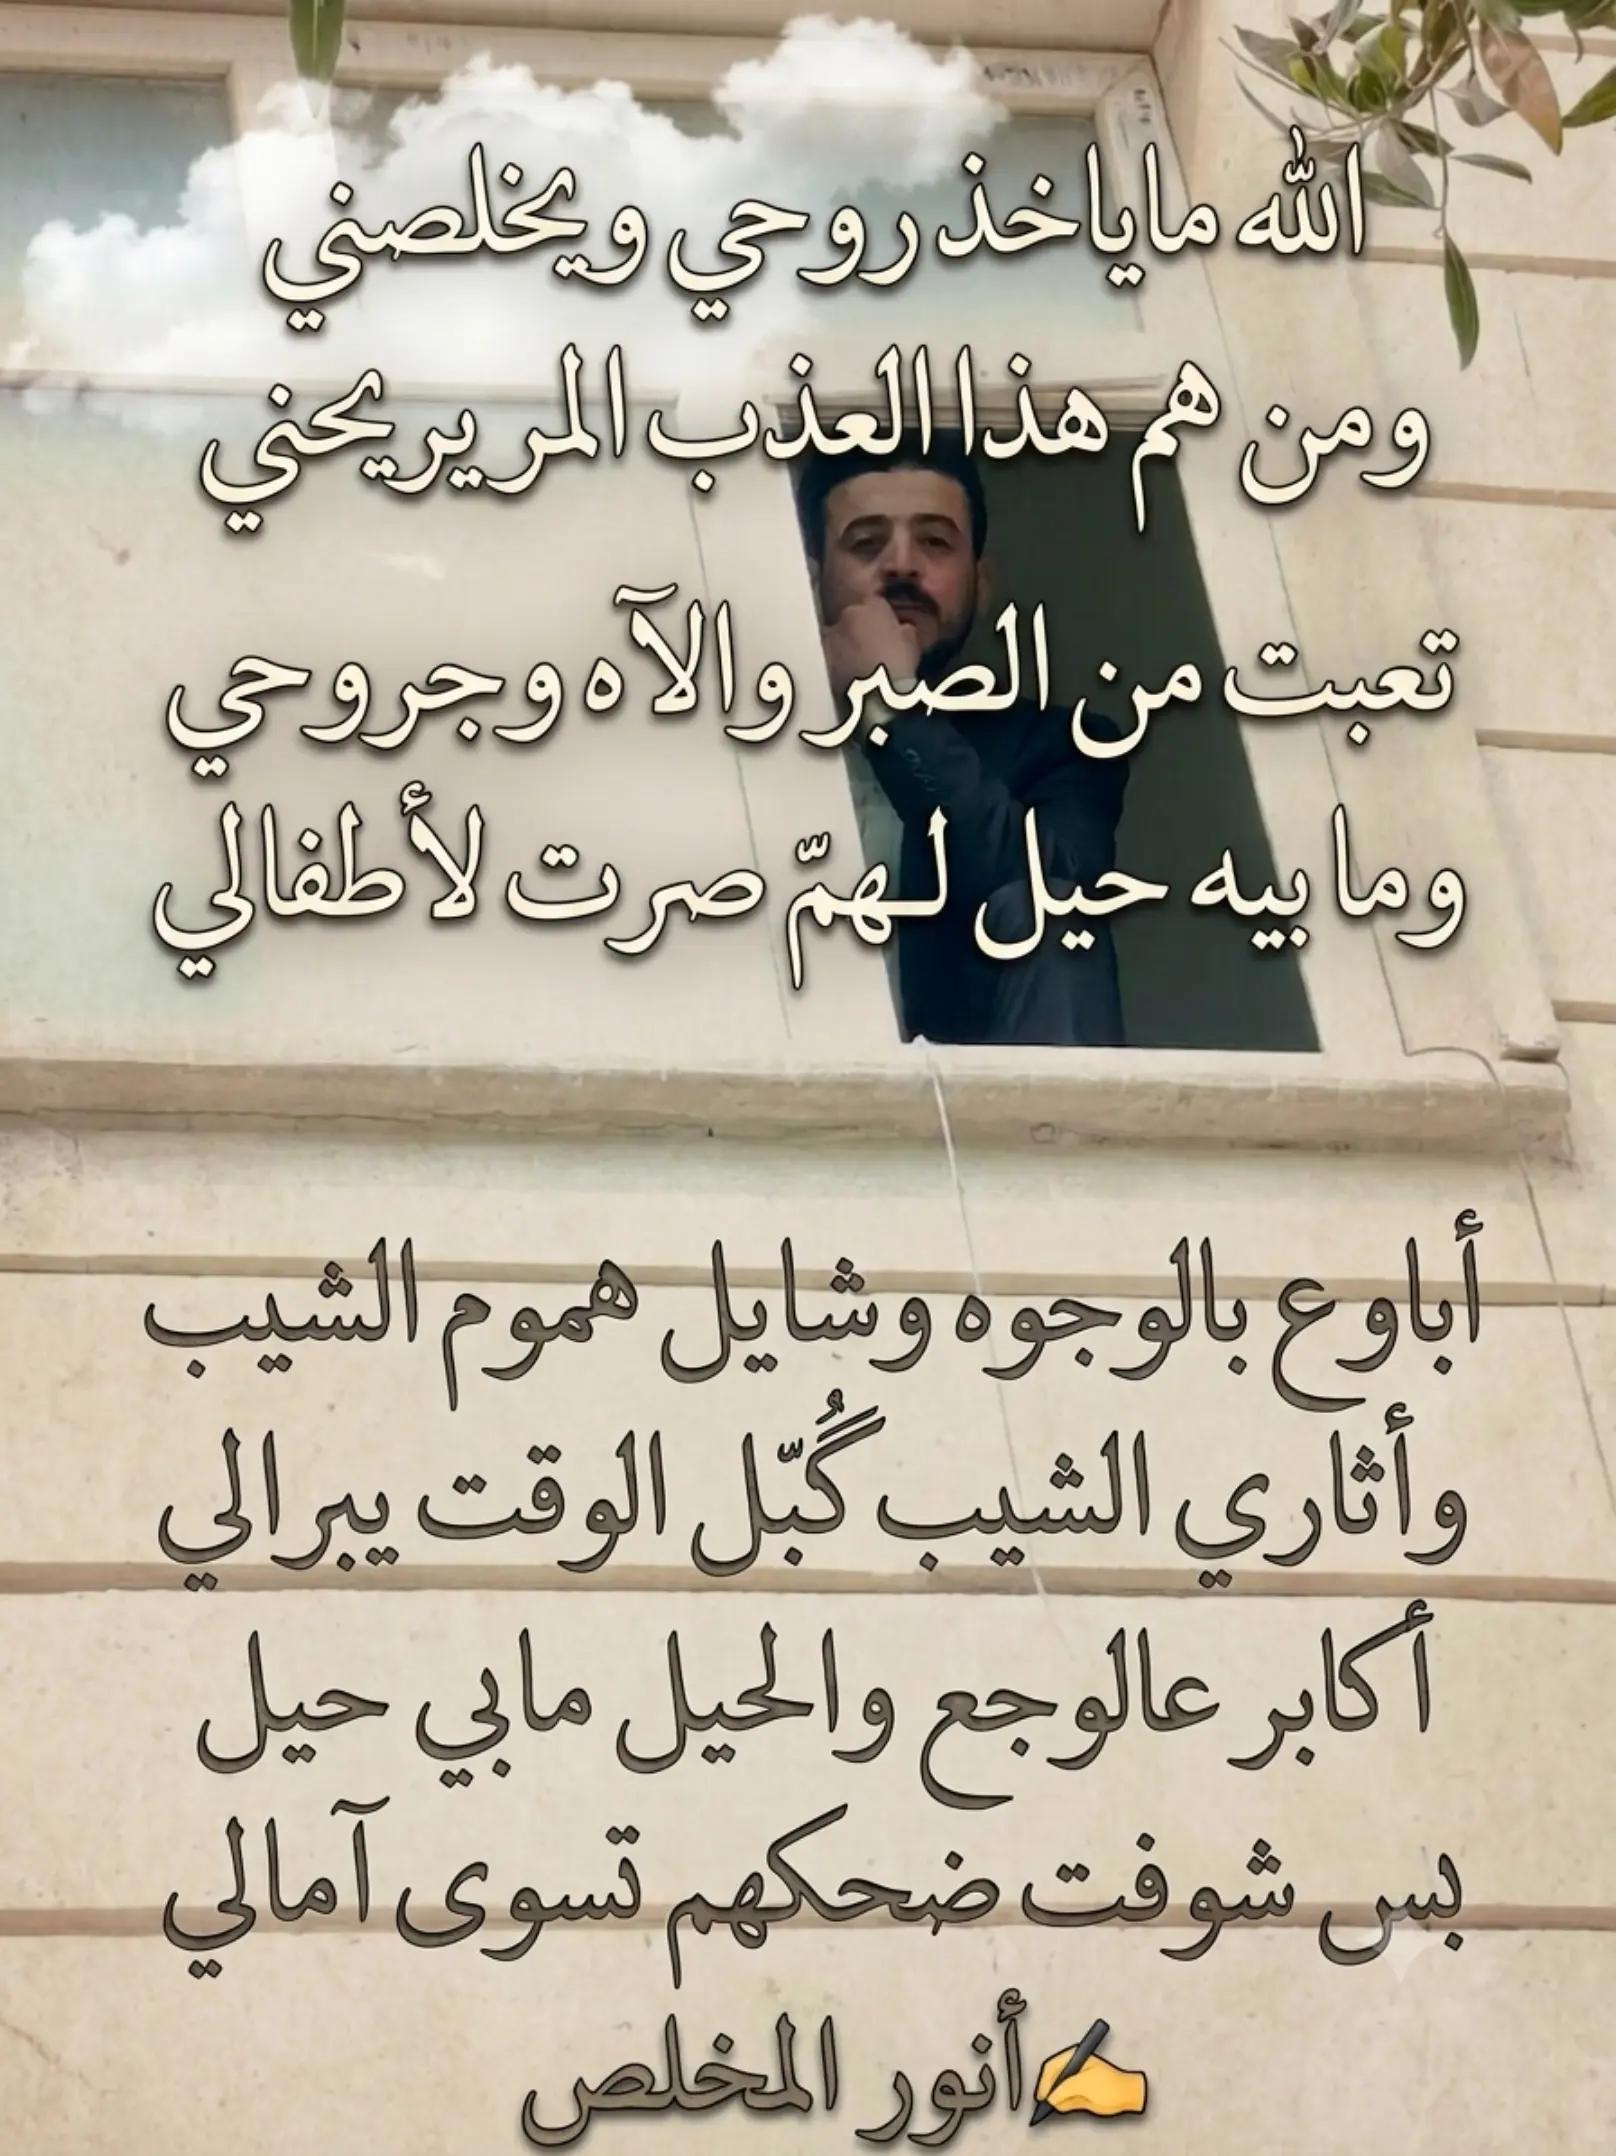 الله ماياخذ روحي ويخلصني
ومن هم هذا العذب المر يريحني
تعبت من الصبر والآه وجروحي
وما بيه حيل لهمّ صرت لأطفالي
أباوع بالوجوه وشايل هموم الشيب
وأثاري الشيب گُبّل الوقت يبرالي
أكابر عالوجع والحيل مابي حيل
بس شوفت ضحكهم تسوى آمالي
✍️أنور المخلص